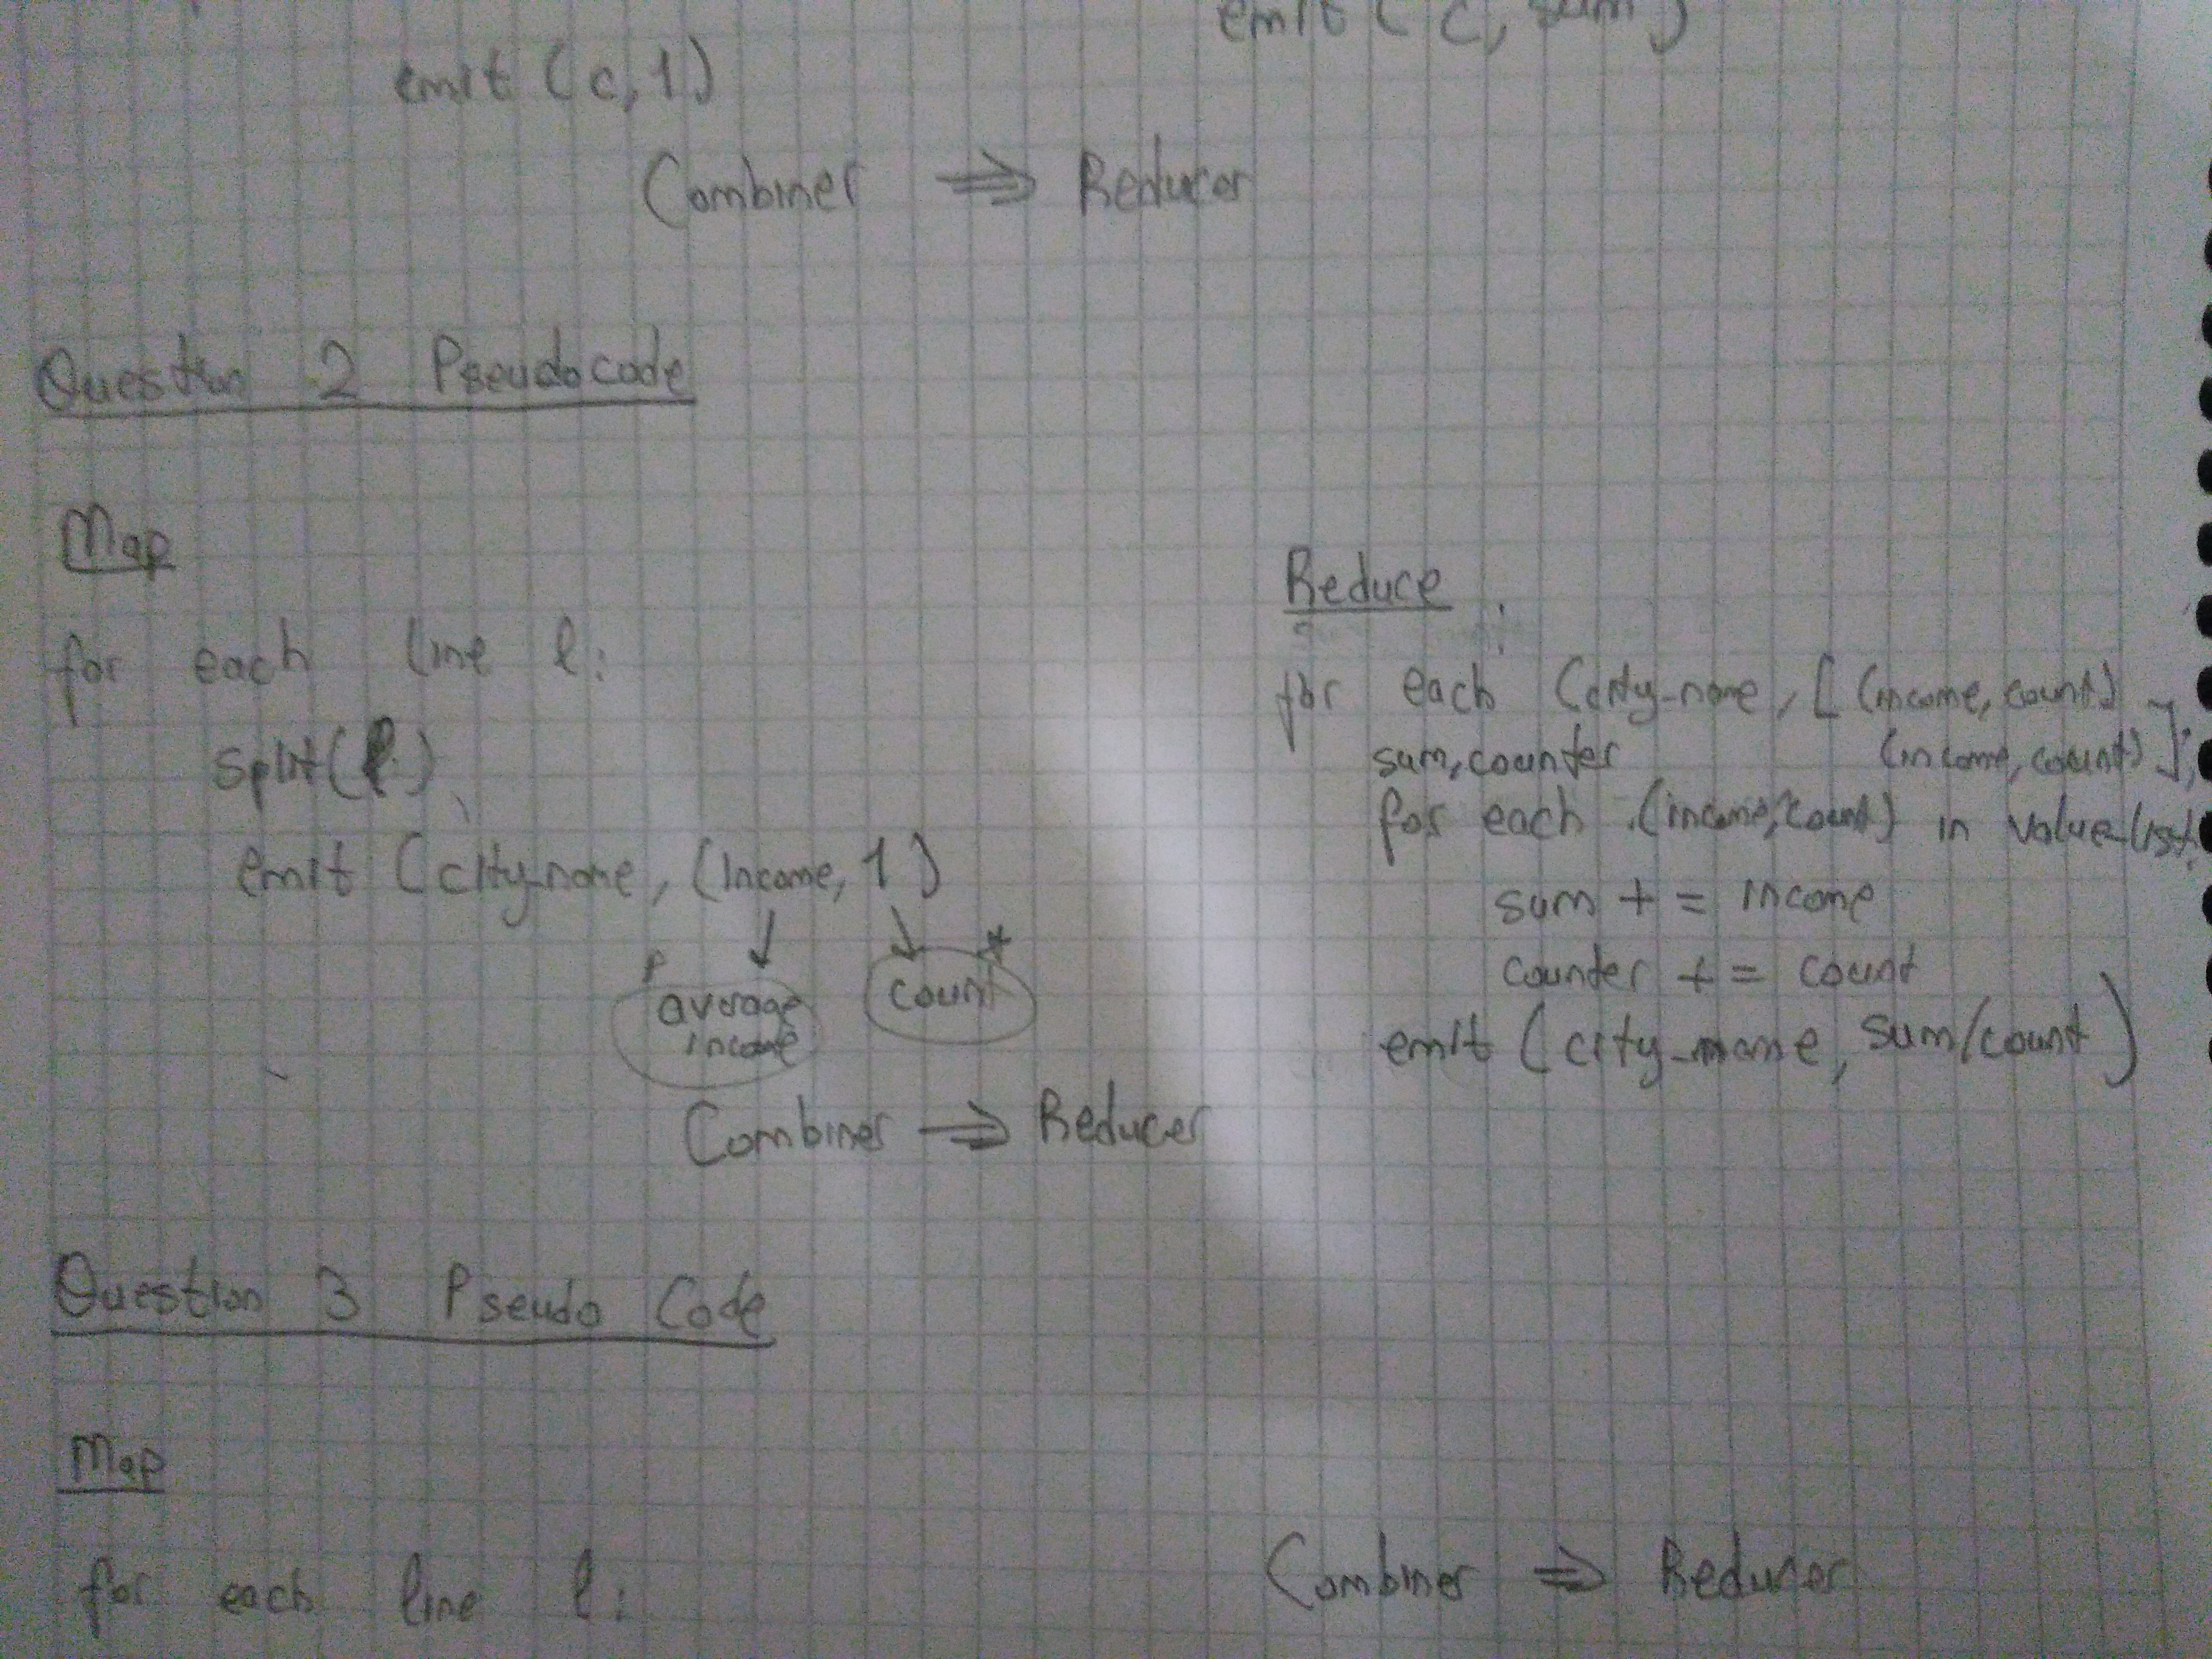 emit (c, sum)
emit (c, 1)
Combiner ⇒ Reducer
Question 2 Pseudocode
Map
for each line l:
split(l)
emit (city_name, (income, 1)
average income
count *
Combiner ⇒ Reducer
Reduce :
for each (city_name, [(income, count)
(income, count)];
sum, counter
for each (income, count) in value_list:
sum + = income
counter + = count
emit (city_name, sum/count)
Question 3 Pseudo Code
Map
for each line l:
Combiner ⇒ Reducer